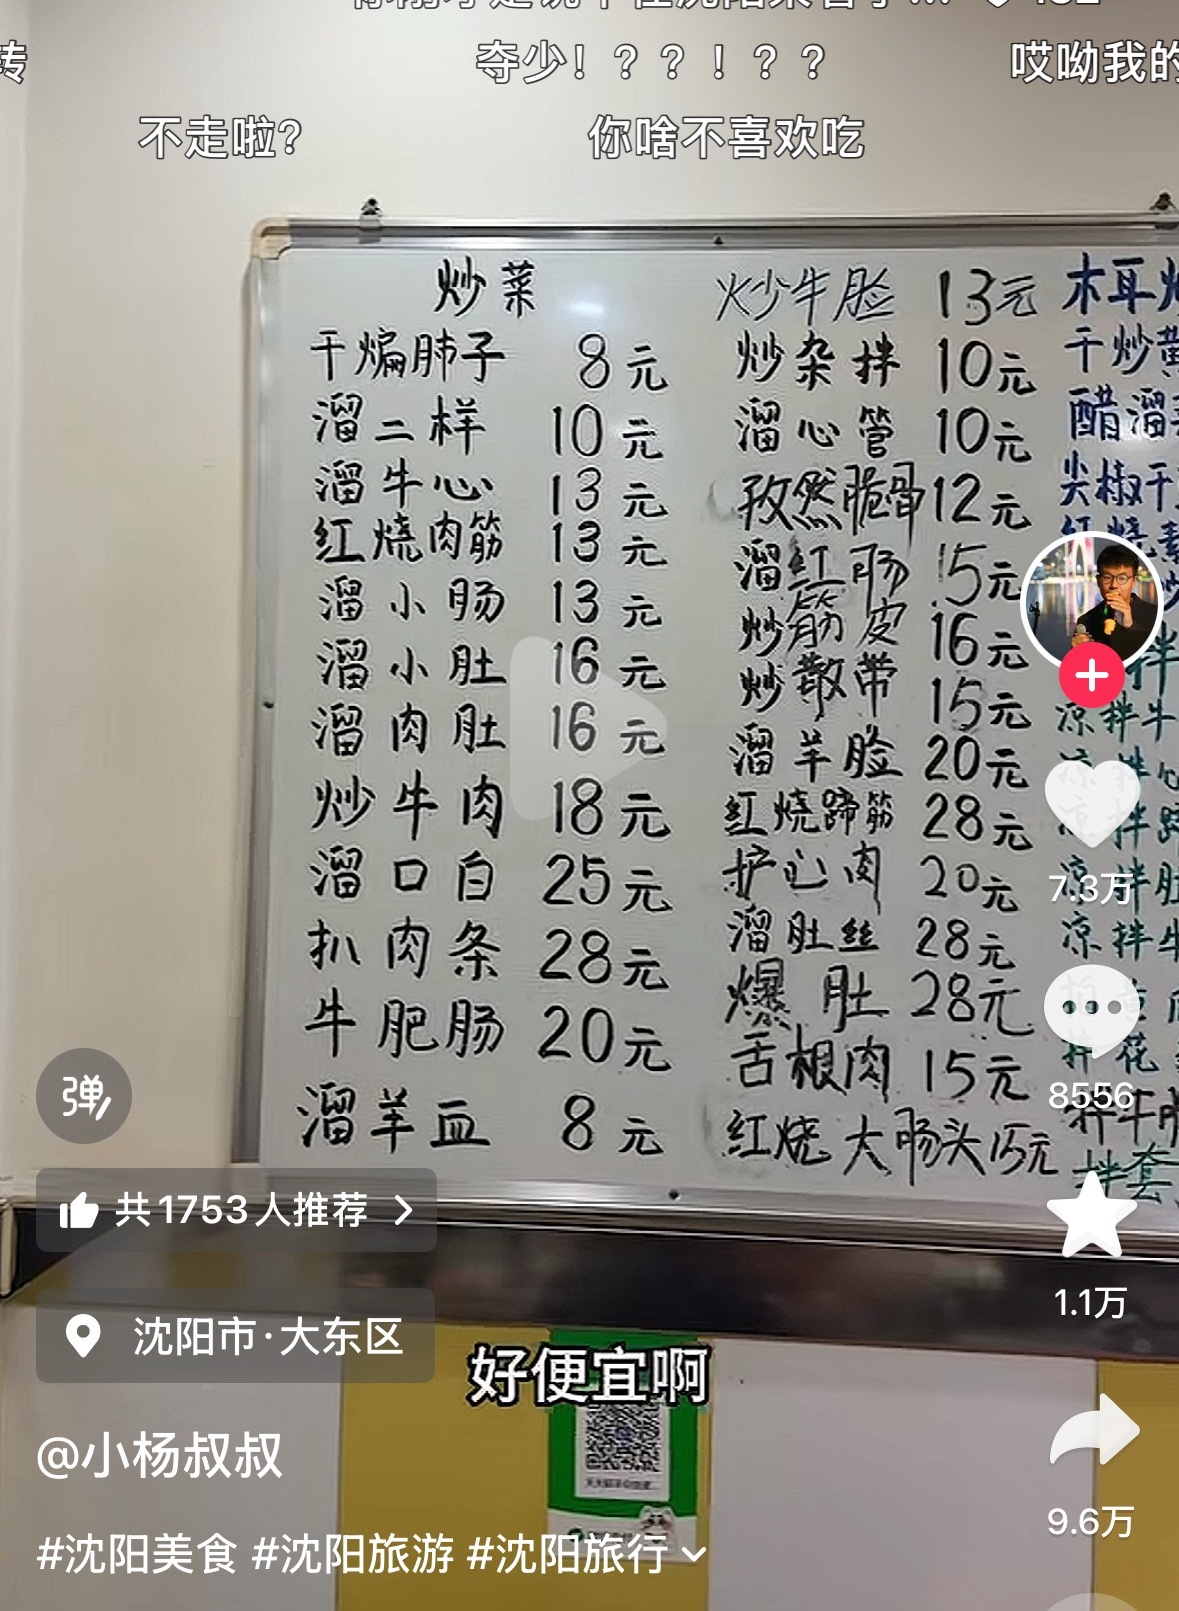 转
夺少！？？！？？
哎呦我的
不走啦？
你啥不喜欢吃
炒菜
干煸肺子 8元
溜二样 10元
溜牛心 13元
红烧肉筋 13元
溜小肠 13元
溜小肚 16元
溜肉肚 16元
炒牛肉 18元
溜口白 25元
扒肉条 28元
牛肥肠 20元
溜羊血 8元
炒牛脸 13元
炒杂拌 10元
溜心管 10元
孜然脆骨 12元
溜红肠 15元
炒筋皮 16元
炒散带 15元
溜羊脸 20元
红烧蹄筋 28元
护心肉 20元
溜肚丝 28元
爆肚 28元
舌根肉 15元
红烧大肠头 15元
木耳炒
干炒黄
醋溜
尖椒干
红烧素
拌
凉拌牛
凉拌心
凉拌蹄
凉拌肚
凉拌牛
拌花
拌牛
拌套
7.3万
8556
1.1万
9.6万
弹
共1753人推荐
沈阳市·大东区
好便宜啊
@小杨叔叔
#沈阳美食 #沈阳旅游 #沈阳旅行